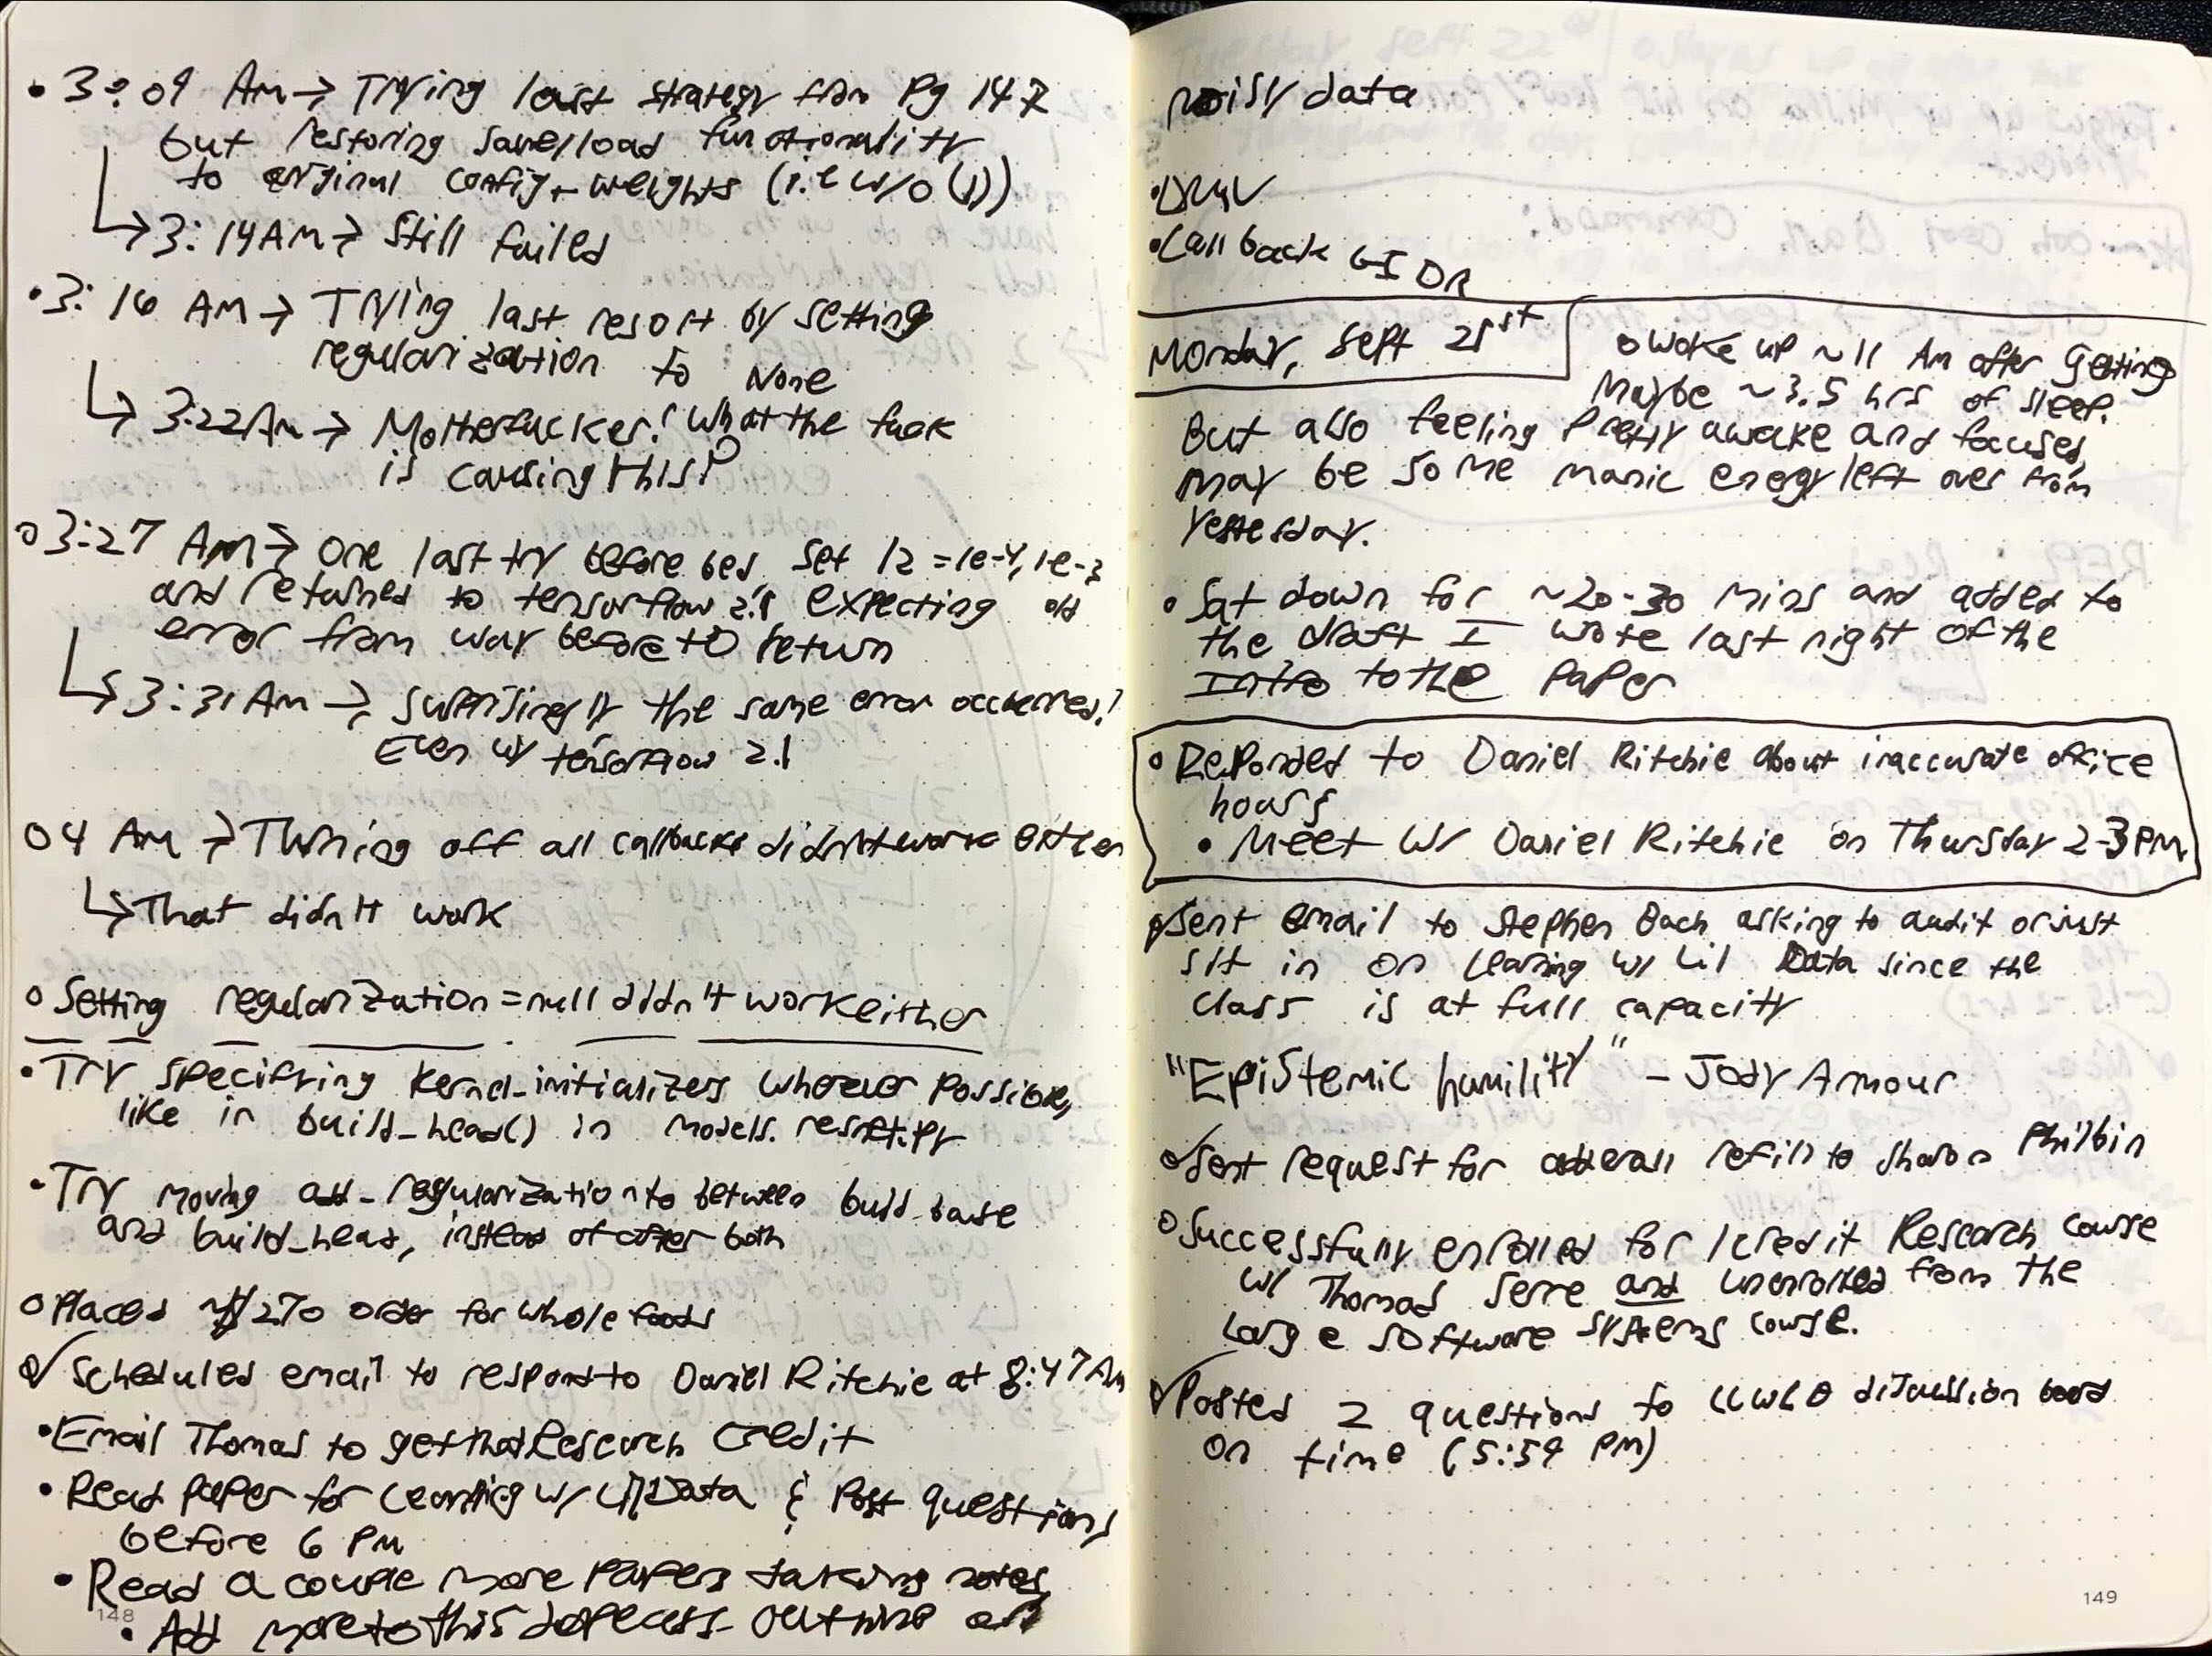 • 3:09 AM → Trying last strategy from Pg 147
but restoring save/load functionality
to original config + weights (i.e w/o (1))
↳ 3:14AM → Still failed
• 3:16 AM → Trying last resort by setting
regularization to None
↳ 3:22AM → Motherfucker! What the fuck
is causing this?
o 3:27 AM → One last try before bed. Set l2 = 1e-4, 1e-3
and returned to tensorflow 2.1 expecting old
error from way before to return
↳ 3:31 AM → Surprisingly the same error occurred!
Even w/ tensorflow 2.1
o 4 AM → Turning off all callbacks didn't work either
↳ That didn't work
o Setting regularization = null didn't work either
• Try specifying kernel_initializers wherever possible,
like in build_head() in models.resnet.py
• Try moving add_regularization to between build_base
and build_head, instead of after both
o Placed ~$270 order for whole foods
✓ Scheduled email to respond to Daniel Ritchie at 8:47AM
• Email Thomas to get that Research Credit
• Read paper for Learning w/ Lil Data & Post questions
before 6 PM
• Read a couple more papers taking notes
• Add more to this outline on
148
noisy data
• DMV
• Call back GI DR
Monday, Sept 21st
o Woke up ~11 AM after getting
Maybe ~3.5 hrs of sleep.
But also feeling pretty awake and focused,
may be some manic energy left over from
yesterday.
• Sat down for ~20-30 mins and added to
the draft I wrote last night of the
Intro to the paper
o Responded to Daniel Ritchie about inaccurate office
hours
• Meet w/ Daniel Ritchie on Thursday 2-3PM
Sent email to Stephen Bach asking to audit or just
sit in on Learning w/ Lil Data since the
class is at full capacity
"Epistemic humility" - Jody Armour
✓ Sent request for adderall refill to Sharon Philbin
o Successfully enrolled for 1 credit Research course
w/ Thomas Serre and unenrolled from the
Large Software Systems course.
✓ Posted 2 questions to LLWLD discussion board
on time (5:59 PM)
149